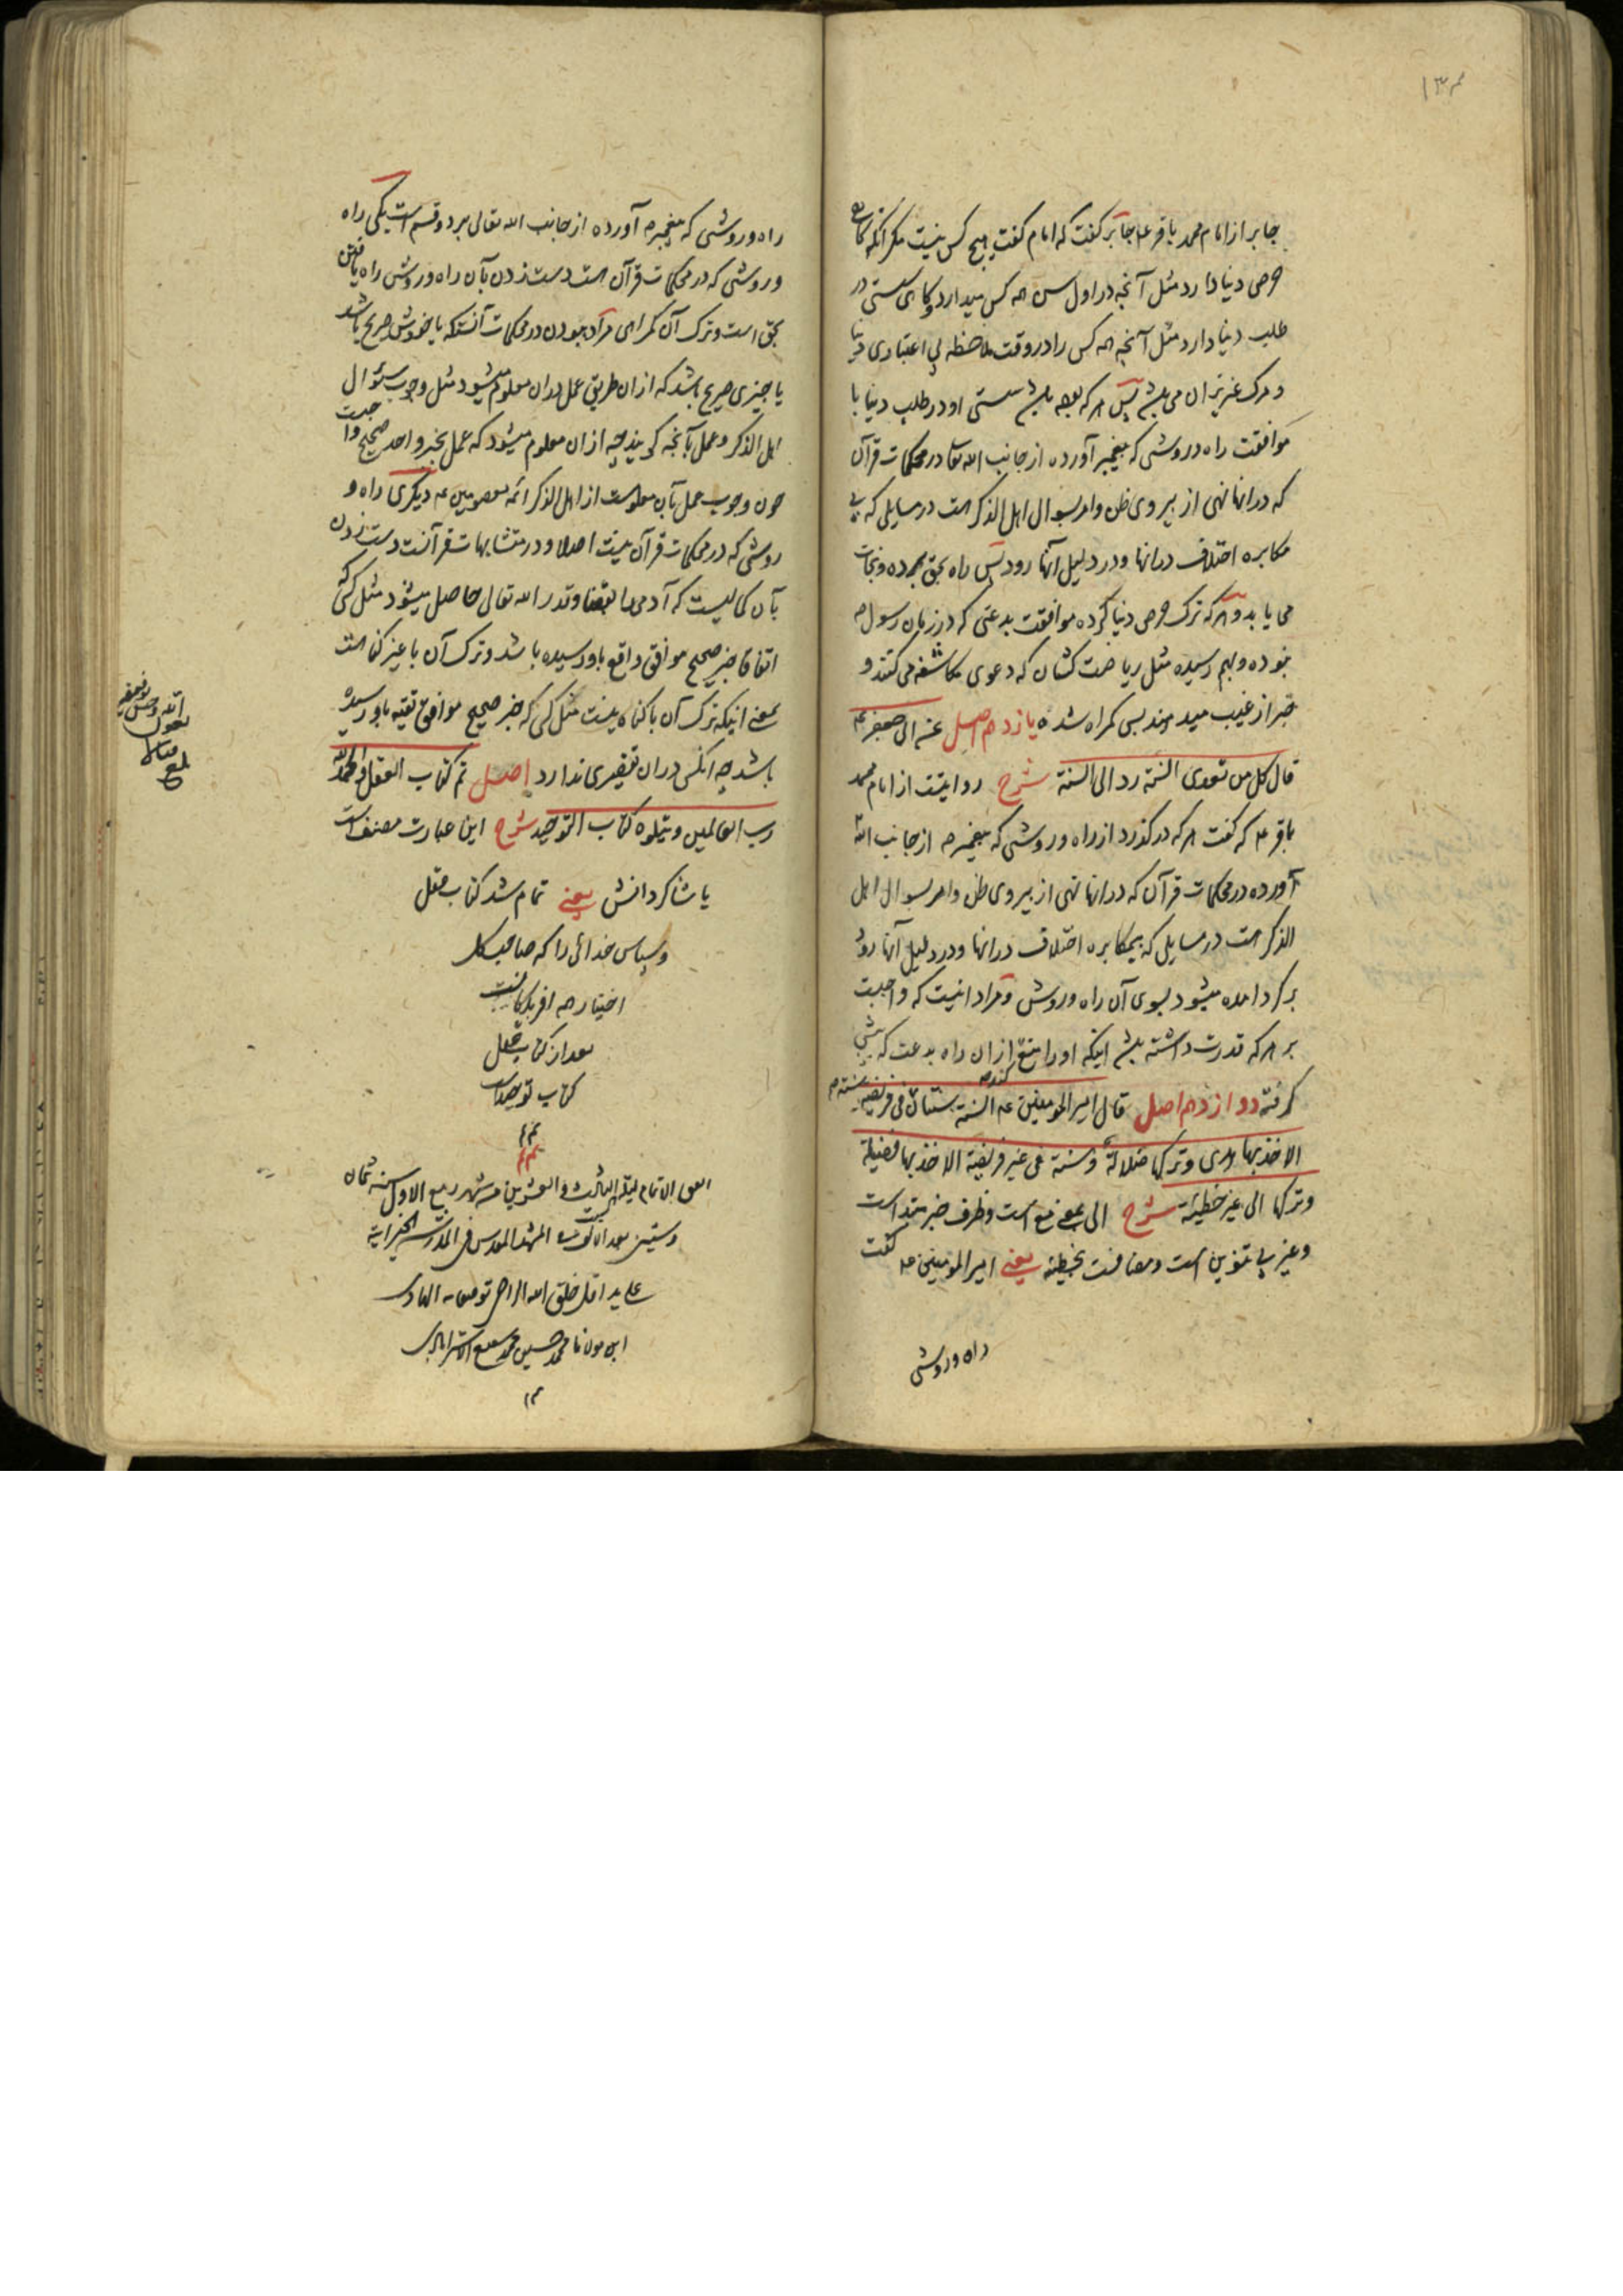 جابر از امام محمد باقر عم جابر کفت که امام کفت هیچ کس نیست مکر آنکه کاهی
حرص دنیا دارد مثل آنچه در اول سن همه کس میدارد و کاهی سستی در
طلب دنیا دارد مثل آنچه همه کس را در وقت ملاحظه بی اعتباری دنیا
و مرک عزیزان می باشد پس هر که بوده باشد سستی او در طلب دنیا با
موافقت راه و روشی که پیغمبر آورده از جانب الله تعالی در محکمات قرآن
که در انها نهی از پیروی ظن و امر بسوال اهل الذکر است در مسایلی که بی
مکابره اختلاف در انها و در دلیل آنها رود پس راه بحق برده و نجات
می یابد و هر که ترک حرص دنیا کرده موافقت بدعتی که در زمان رسول ص
نبوده و بهم رسیده مثل ریاضت کشان که دعوی مکاشفه می کنند و
خبر از غیب میدهند پس کمراه شده یازدهم اصل عن ابی جعفر عم
قال کل من تعدی السنة رد الی السنة شرح روایتست از امام محمد
باقر عم که کفت هر که در کذرد از راه و روشی که پیغمبر ص از جانب الله
آورده در محکمات قرآن که در انها نهی از پیروی ظن و امر بسوال اهل
الذکر است در مسایلی که بیمکابره اختلاف در انها و در دلیل آنها رود
برکردانده میشود بسوی آن راه و روش و مراد اینست که واجبست
بر هر که قدرت داشته باشد اینکه او را منع کند از ان راه بدعت که پیش
کرفته دوازدهم اصل قال امیر المؤمنین عم السنة سنتان سنة فی فریضة
الاخذ بها هدی و ترکها ضلالة و سنة فی غیر فریضة الاخذ بها فضیلة
و ترکها الی غیر خطیئة شرح الی بمعنی مع است و ظرف خبر مبتدا است
و غیر بی تنوین است و مضافست بخطیئة یعنی امیر المومنین عم کفت
راه و روشی
راه و روشی که پیغمبر ص آورده از جانب الله تعالی بر دو قسم است یکی راه
و روشی که در محکمات قرآن است دست زدن بآن راه و روش راه یافتن
بحق است و ترک آن کمراهی مراد ببودن در محکمات آنستکه یا خودش صریح باشد
یا چیزی صریح باشد که از ان طریق عمل در ان معلوم میشود مثل وجوب سئوال
اهل الذکر و عمل بآنچه کویند چه از ان معلوم میشود که عمل بخبر واحد صحیح واجبست
چون وجوب عمل بآن معلومست از اهل الذکر ائمه معصومین عم دیکری راه و
روشی که در محکمات قرآن نیست اصلا و در متشابهات قرآنست دست زدن
بآن کمالیست که آدمی را بقضا و قدر الله تعالی حاصل میشود مثل کسی که
اتفاقا خبر صحیح موافق واقع باو رسیده باشد و ترک آن با غیر کناه است
بمعنی اینکه ترک آن با کناه نیست مثل کسی که خبر صحیح موافق تقیه باو رسیده
باشد چه انکس در ان تقصیری ندارد اصل تم کتاب العقل و الحمد لله
رب العالمین و یتلوه کتاب التوحید شرح این عبارت مصنف است
یا شاکردانش یعنی تمام شد کتاب عقل
و سپاس خدائی را که صاحب کل
اختیار هر آفریدکانست
بعد از کتاب عقل
کتاب توحید است
تم
اتفق الاتمام لیلة الثالث و العشرین من شهر ربیع الاول سنه ثمان
و ستین بعد الالف فی المشهد المقدس فی المدرسه الخیراتیه
علی ید اقل خلق الله الراجی
ابن مولانا محمد حسین محمد سمیع الاسترابادی